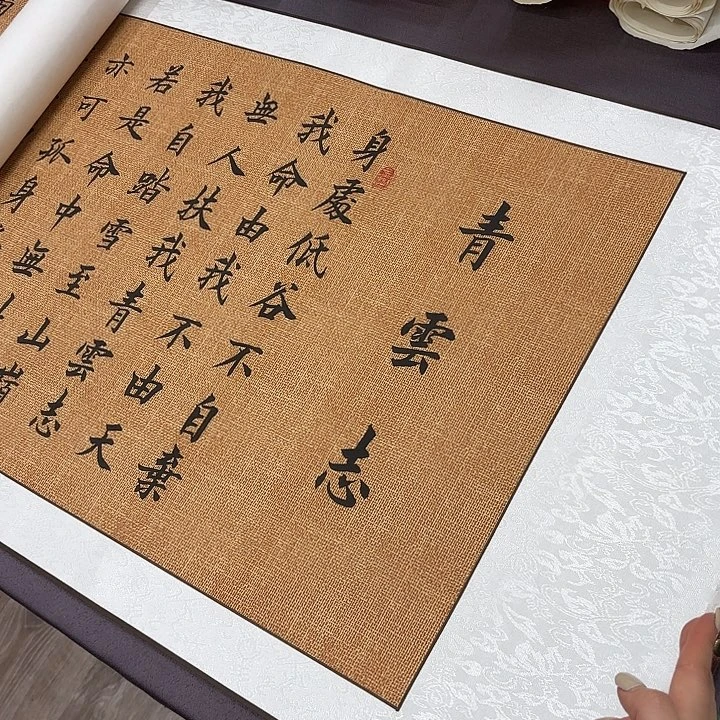 青雲志
身處低谷不自棄
我命由我不由天
無人扶我青雲志
我自踏雪至山巔
若是命中無
亦可孤身